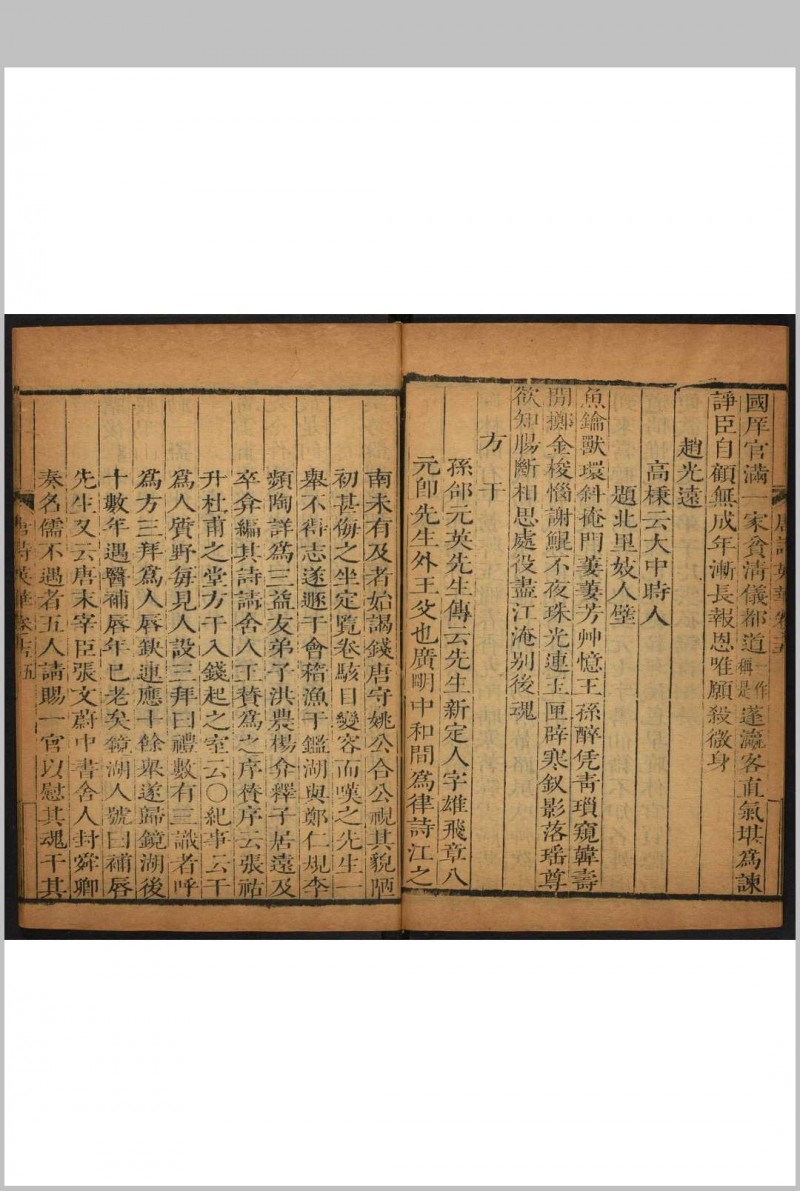 國庠官滿一家貧清儀都道一作稱是蓬瀛客直氣堪爲諫
諍臣自顧無成年漸長報恩唯願殺微身
趙光遠
高棅云大中時人
題北里妓人壁
魚鑰獸環斜掩門萋萋芳艸憶王孫醉凭靑瑣窺韓壽
閒擲金梭惱謝鯤不夜珠光連玉匣辟寒釵影落瑶尊
欲知腸斷相思處役盡江淹别後魂
方干
孫郃元英先生傳云先生新定人字雄飛章八
元卽先生外王父也廣明中和間爲律詩江之
唐詩英華卷十五
南未有及者始謁錢唐守姚公合公視其貌陋
初甚侮之坐定覽卷駭目變容而嘆之先生一
舉不得志遂遯于會稽漁于鑑湖與鄭仁規李
頻陶詳爲三益友弟子洪農楊弇釋子居遠及
卒弇編其詩請舍人王贊爲之序贊序云張祐
升杜甫之堂方干入錢起之室云〇紀事云干
爲人質野每見人設三拜曰禮數有三識者呼
爲方三拜爲人唇缺連應十餘舉遂歸鏡湖後
十數年遇醫補唇年已老矣鏡湖人號曰補唇
先生又云唐末宰臣張文蔚中書舍人封舜卿
奏名儒不遇者五人請賜一官以慰其魂干其
唐詩英華卷十五